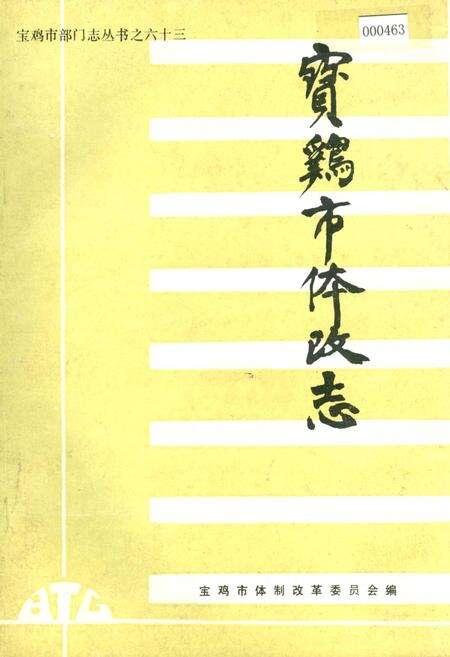 宝鸡市部门志丛书之六十三
000463
寳鷄市体改志
宝鸡市体制改革委员会编